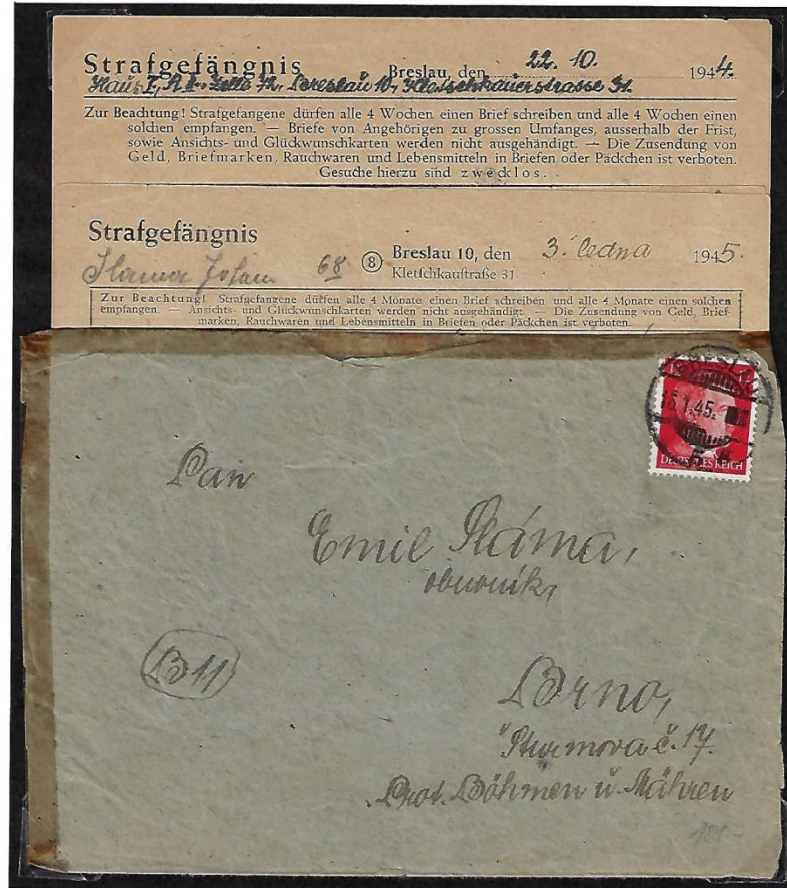 Strafgefängnis Breslau, den 22. 10. 1944.
Haus I, A I. Zelle 72, Breslau 10, Kletschkauerstrasse 31.
Zur Beachtung! Strafgefangene dürfen alle 4 Wochen einen Brief schreiben und alle 4 Wochen einen
solchen empfangen. — Briefe von Angehörigen zu grossen Umfanges, ausserhalb der Frist,
sowie Ansichts- und Glückwunschkarten werden nicht ausgehändigt. — Die Zusendung von
Geld, Briefmarken, Rauchwaren und Lebensmitteln in Briefen oder Päckchen ist verboten.
Gesuche hierzu sind zwecklos.
Strafgefängnis
Sláma 68 ⑧ Breslau 10, den 3. ledna 1945.
Kletschkaustraße 31
Zur Beachtung! Strafgefangene dürfen alle 4 Monate einen Brief schreiben und alle 4 Monate einen solchen
empfangen. — Ansichts- und Glückwunschkarten werden nicht ausgehändigt. — Die Zusendung von Geld, Brief-
marken, Rauchwaren und Lebensmitteln in Briefen oder Päckchen ist verboten.
BRESLAU
15.1.45.
5
DEUTSCHES REICH
Pan
Emil Sláma,
obuvník,
B11
Brno,
Sturmova č. 17.
Prot. Böhmen u. Mähren